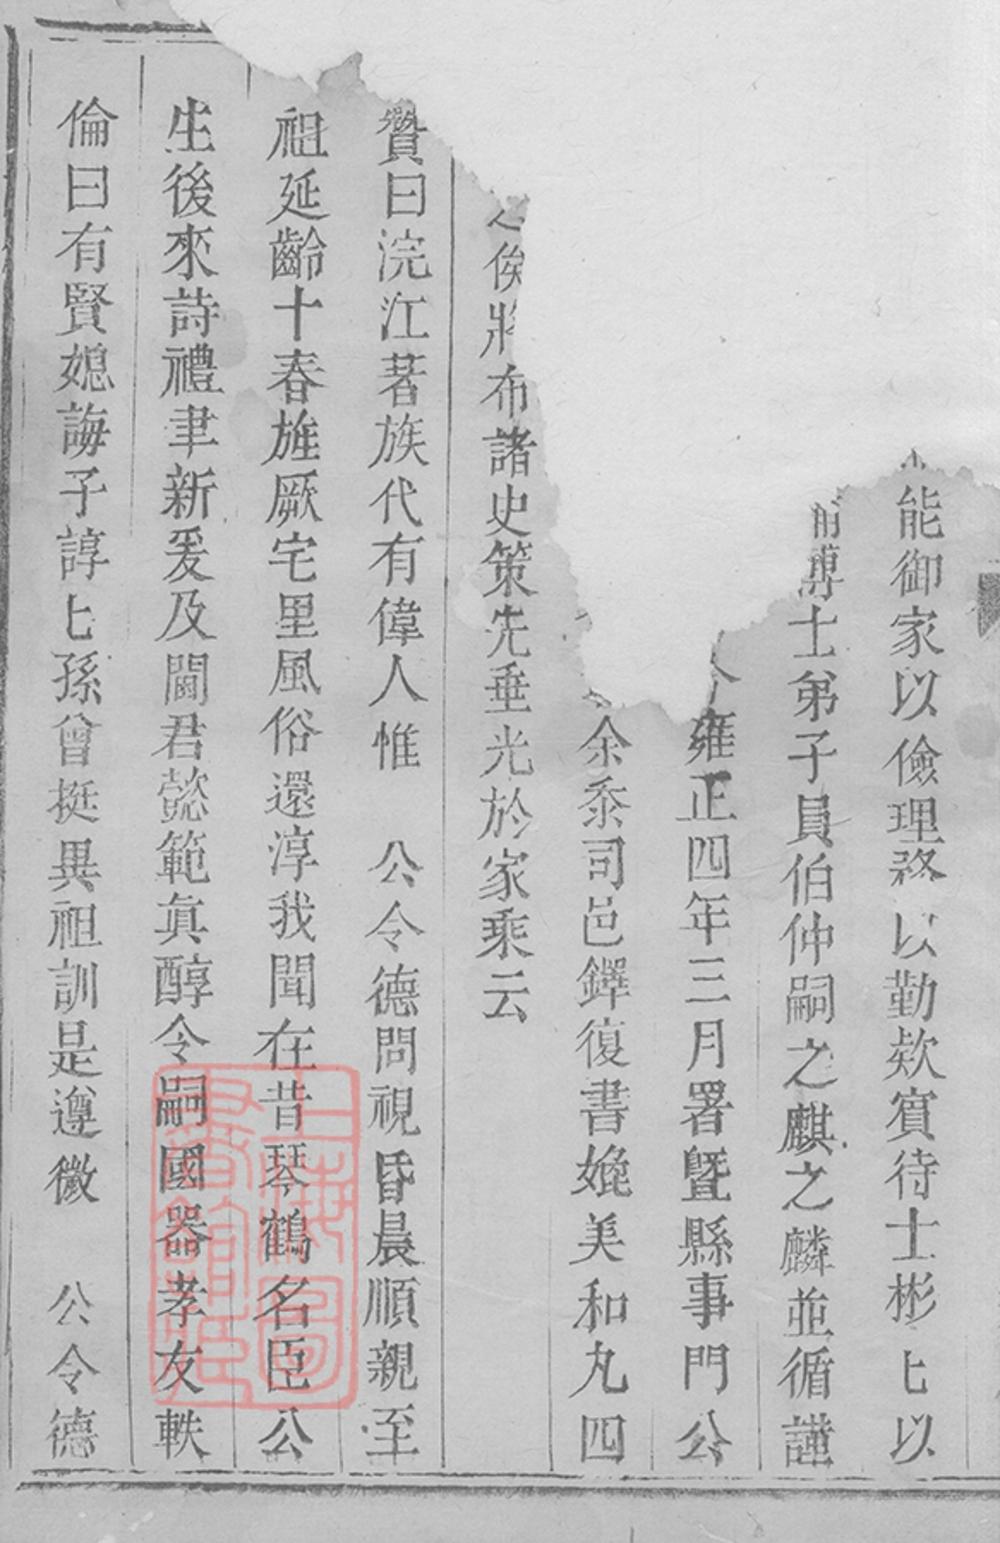 能御家以儉理務以勤欵賔待士彬匕以
博士弟子員伯仲嗣之麒之麟並循謹
雍正四年三月署曁縣事門公
余忝司邑鐸復書媲美和丸四
俟將布諸史策先垂光於家乘云
贊曰浣江著族代有偉人惟　公令德問視昏晨順親至
祖延齡十春旌厥宅里風俗還淳我聞在昔琴鶴名臣公
生後來詩禮聿新爰及閫君懿範眞醇令嗣國器孝友軼
倫曰有賢媳誨子諄匕孫曾挺異祖訓是遵微　公令德
上海圖書館藏